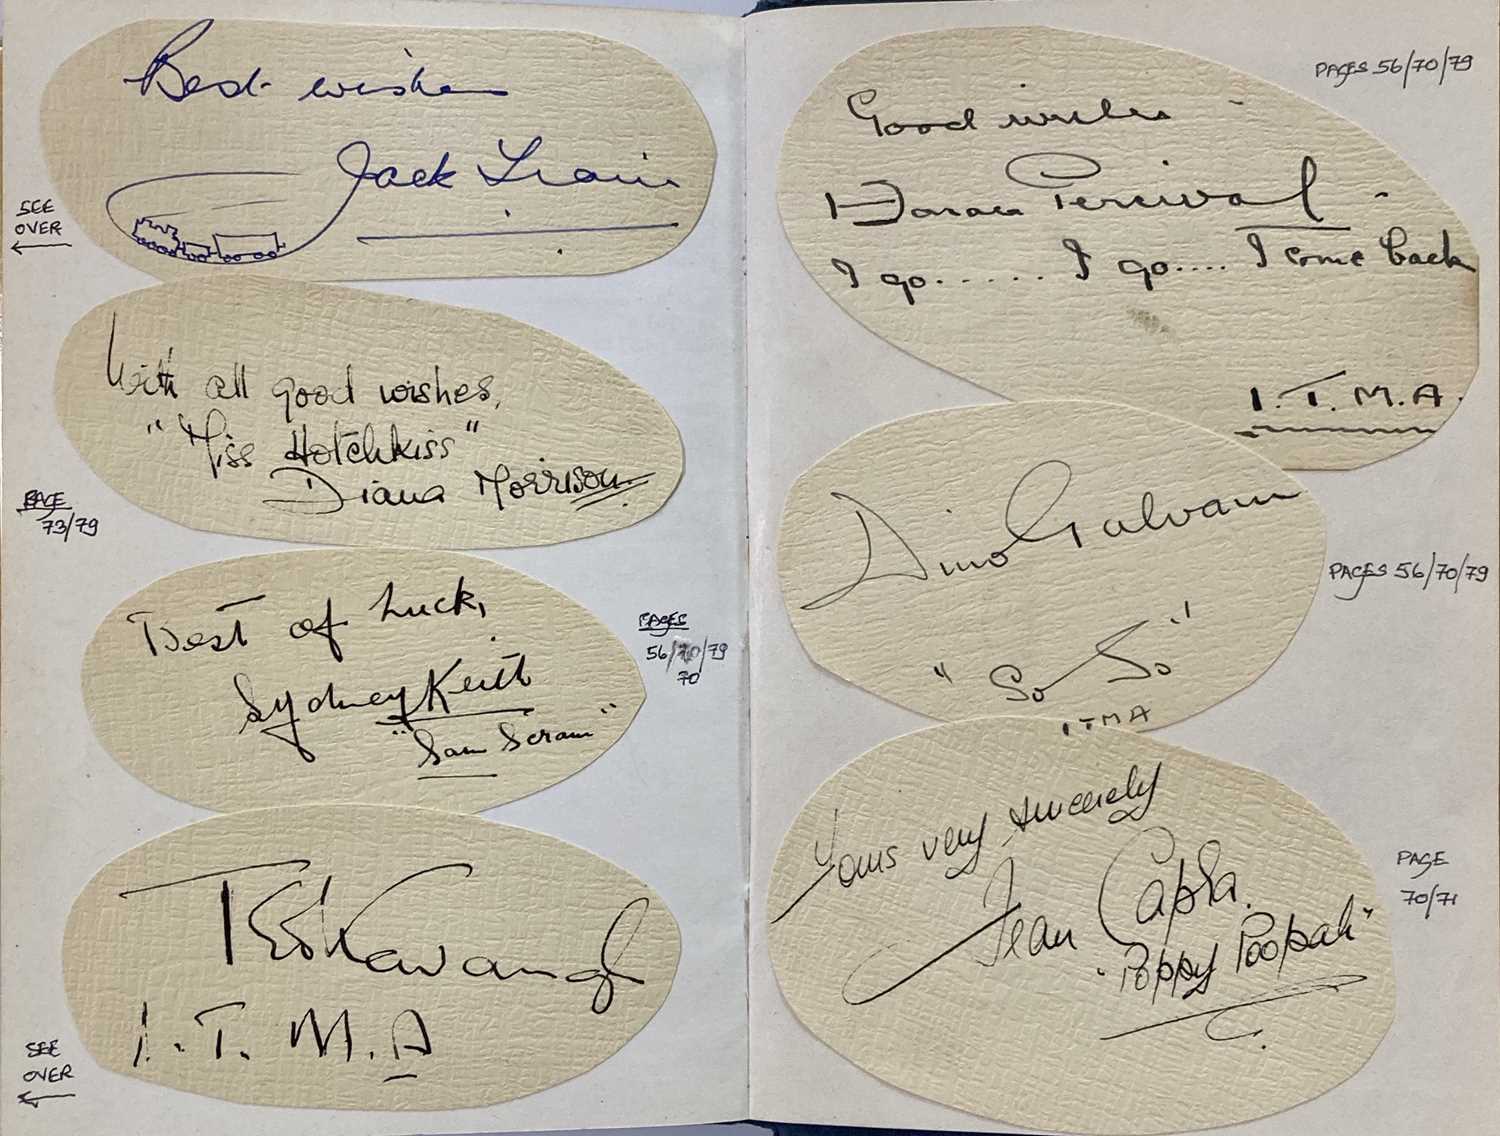 Best wishes
Jack Train
SEE
OVER
With all good wishes,
"Miss Hotchkiss"
Diana Morrison
PAGE
73/79
Best of Luck,
Sydney Keith
"Sam Scram"
PAGES
56/70/79
70
Kavanagh
I.T.M.A
SEE
OVER
PAGES 56/70/79
Good wishes
Horace Percival
I go...... I go.... I come back
I.T.M.A.
Dino Galvani
"So So"
ITMA
PAGES 56/70/79
Yours very sincerely
Jean Capra.
"Poppy Poopah"
PAGE
70/71